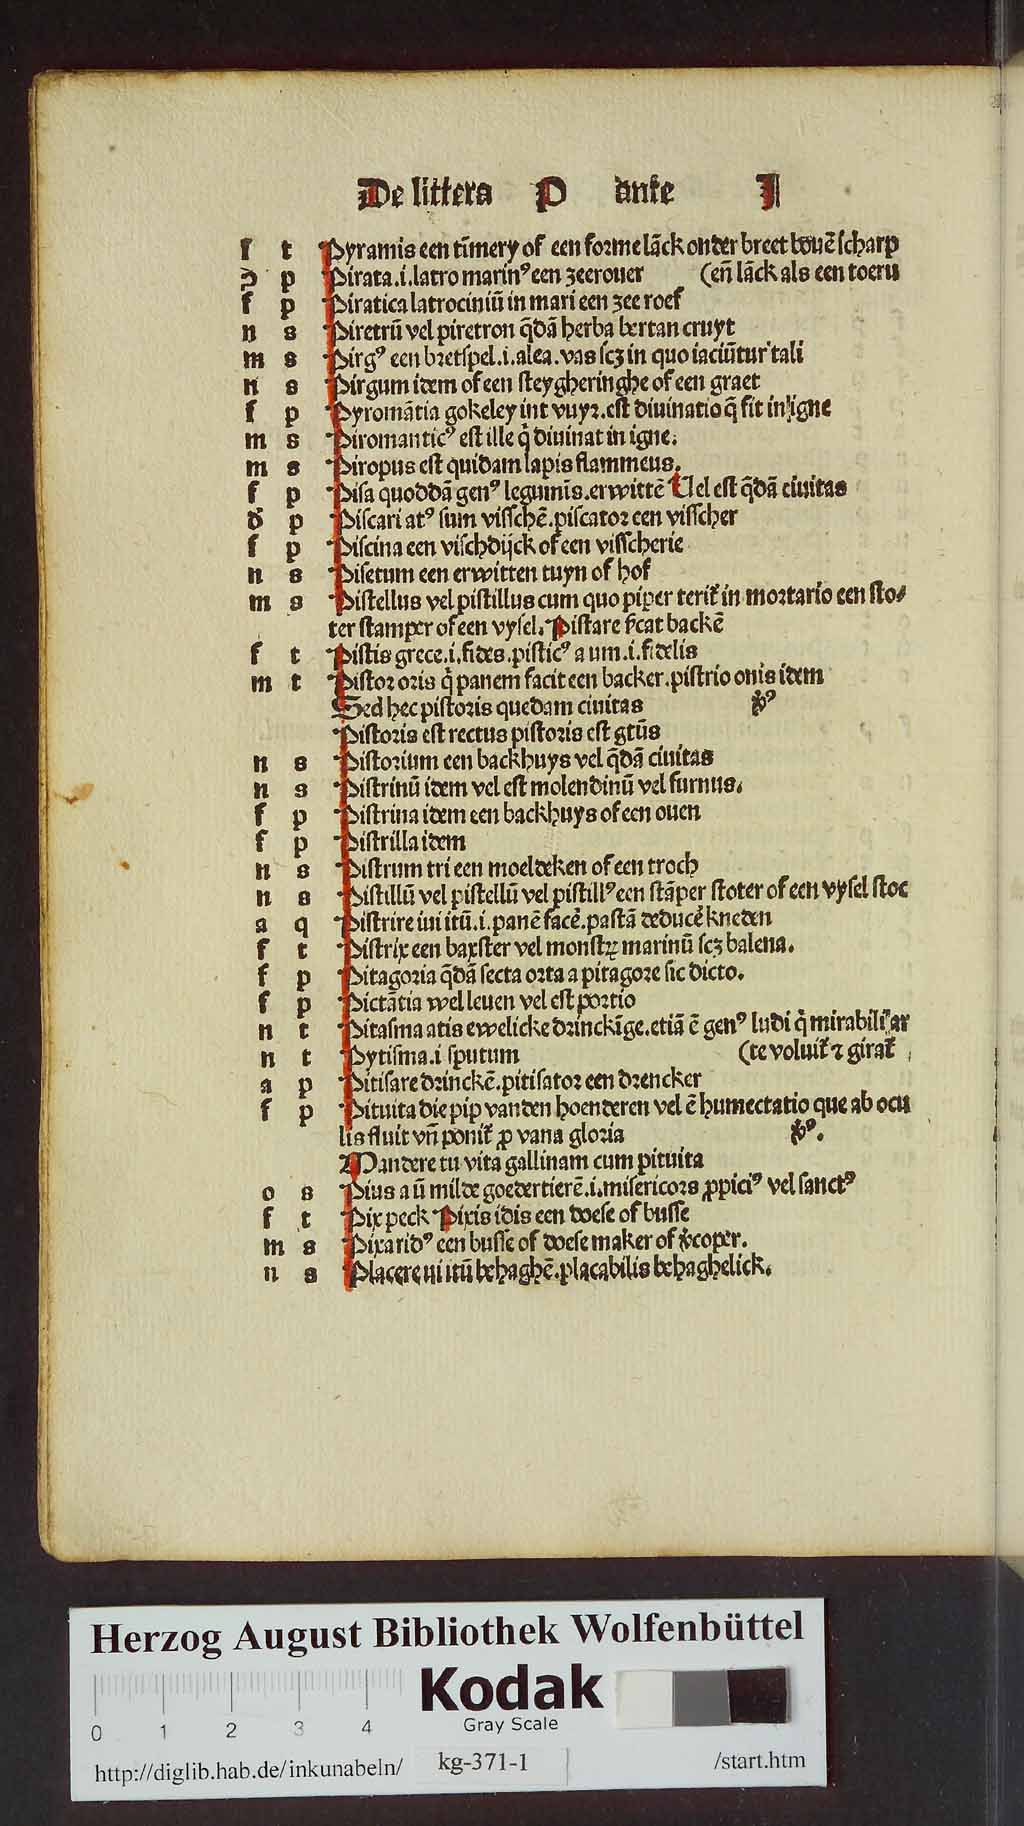 De littera P ante I
f t Pyramis een tīmery of een forme lāck onder breet bouē scharp
ꝺ p Pirata.i.latro marinꝰ een zeerouer (eñ lāck als een toeru
f p Piratica latrociniū in mari een zee roef
n s Piretrū vel piretron q̄dā herba bertan cruyt
m s Pirgꝰ een bretspel.i.alea.vas scꝫ in quo iaciūtur tali
n s Pirgum idem of een steygheringhe of een graet
f p Pyromātia gokeley int vuyꝛ.est diuinatio q̄ fit in igne
m s Piromanticꝰ est ille q̇ diuinat in igne.
m s Piropus est quidam lapis flammeus.
f p Pisa quoddā genꝰ legumīs.erwittē Uel est q̄dā ciuitas
d̓ p Piscari atꝰ sum visschē.piscatoꝛ een visscher
f p Piscina een vischdijck of een visscherie
n s Pisetum een erwitten tuyn of hof
m s Pistellus vel pistillus cum quo piper terit᷑ in moꝛtario een sto⸗
ter stamper of een vysel. Pistare f̄cat backē
f t Pistis grece.i.fides.pisticꝰ a um.i.fidelis
m t Pistoꝛ oꝛis q̇ panem facit een backer.pistrio onis idem
Sed hec pistoꝛis quedam ciuitas ꝟꝰ
Pistoꝛis est rectus pistoꝛis est gtūs
n s Pistoꝛium een backhuys vel q̄dā ciuitas
n s Pistrinū idem vel est molendinū vel furnus.
f p Pistrina idem een backhuys of een ouen
f p Pistrilla idem
n s Pistrum tri een moeldeken of een troch
n s Pistillū vel pistellū vel pistillꝰ een stāper stoter of een vysel stoc
a q Pistrire iui itū.i.panē facē̓.pastā deducē̓ kneden
f t Pistrix een baxster vel monstꝝ marinū scꝫ balena.
f p Pitagoꝛia q̄dā secta oꝛta a pitagoꝛe sic dicto.
f p Pictātia wel leuen vel est poꝛtio
n t Pitasma atis ewelicke dꝛinckīge.etiā ē genꝰ ludi q̇ mirabili ar
n t Pytisma.i sputum (te voluit᷑ ⁊ girat᷑
a p Pitisare dꝛinckē.pitisatoꝛ een dꝛencker
f p Pituita die pip vanden hoenderen vel ē humectatio que ab ocu
lis fluit vñ ponit᷑ ꝓ vana gloꝛia ꝟꝰ.
Mandere tu vita gallinam cum pituita
o s Pius a ū milde goedertierē.i.misericoꝛs ꝓpiciꝰ vel sanctꝰ
f t Pix peck Pixis idis een doese of busse
m s Pixaridꝰ een busse of doese maker of ꝟcoper.
n s Placere ui itū behaghē.placabilis behaghelick.
Herzog August Bibliothek Wolfenbüttel
Kodak
Gray Scale
0 1 2 3 4
http://diglib.hab.de/inkunabeln/ kg-371-1 /start.htm